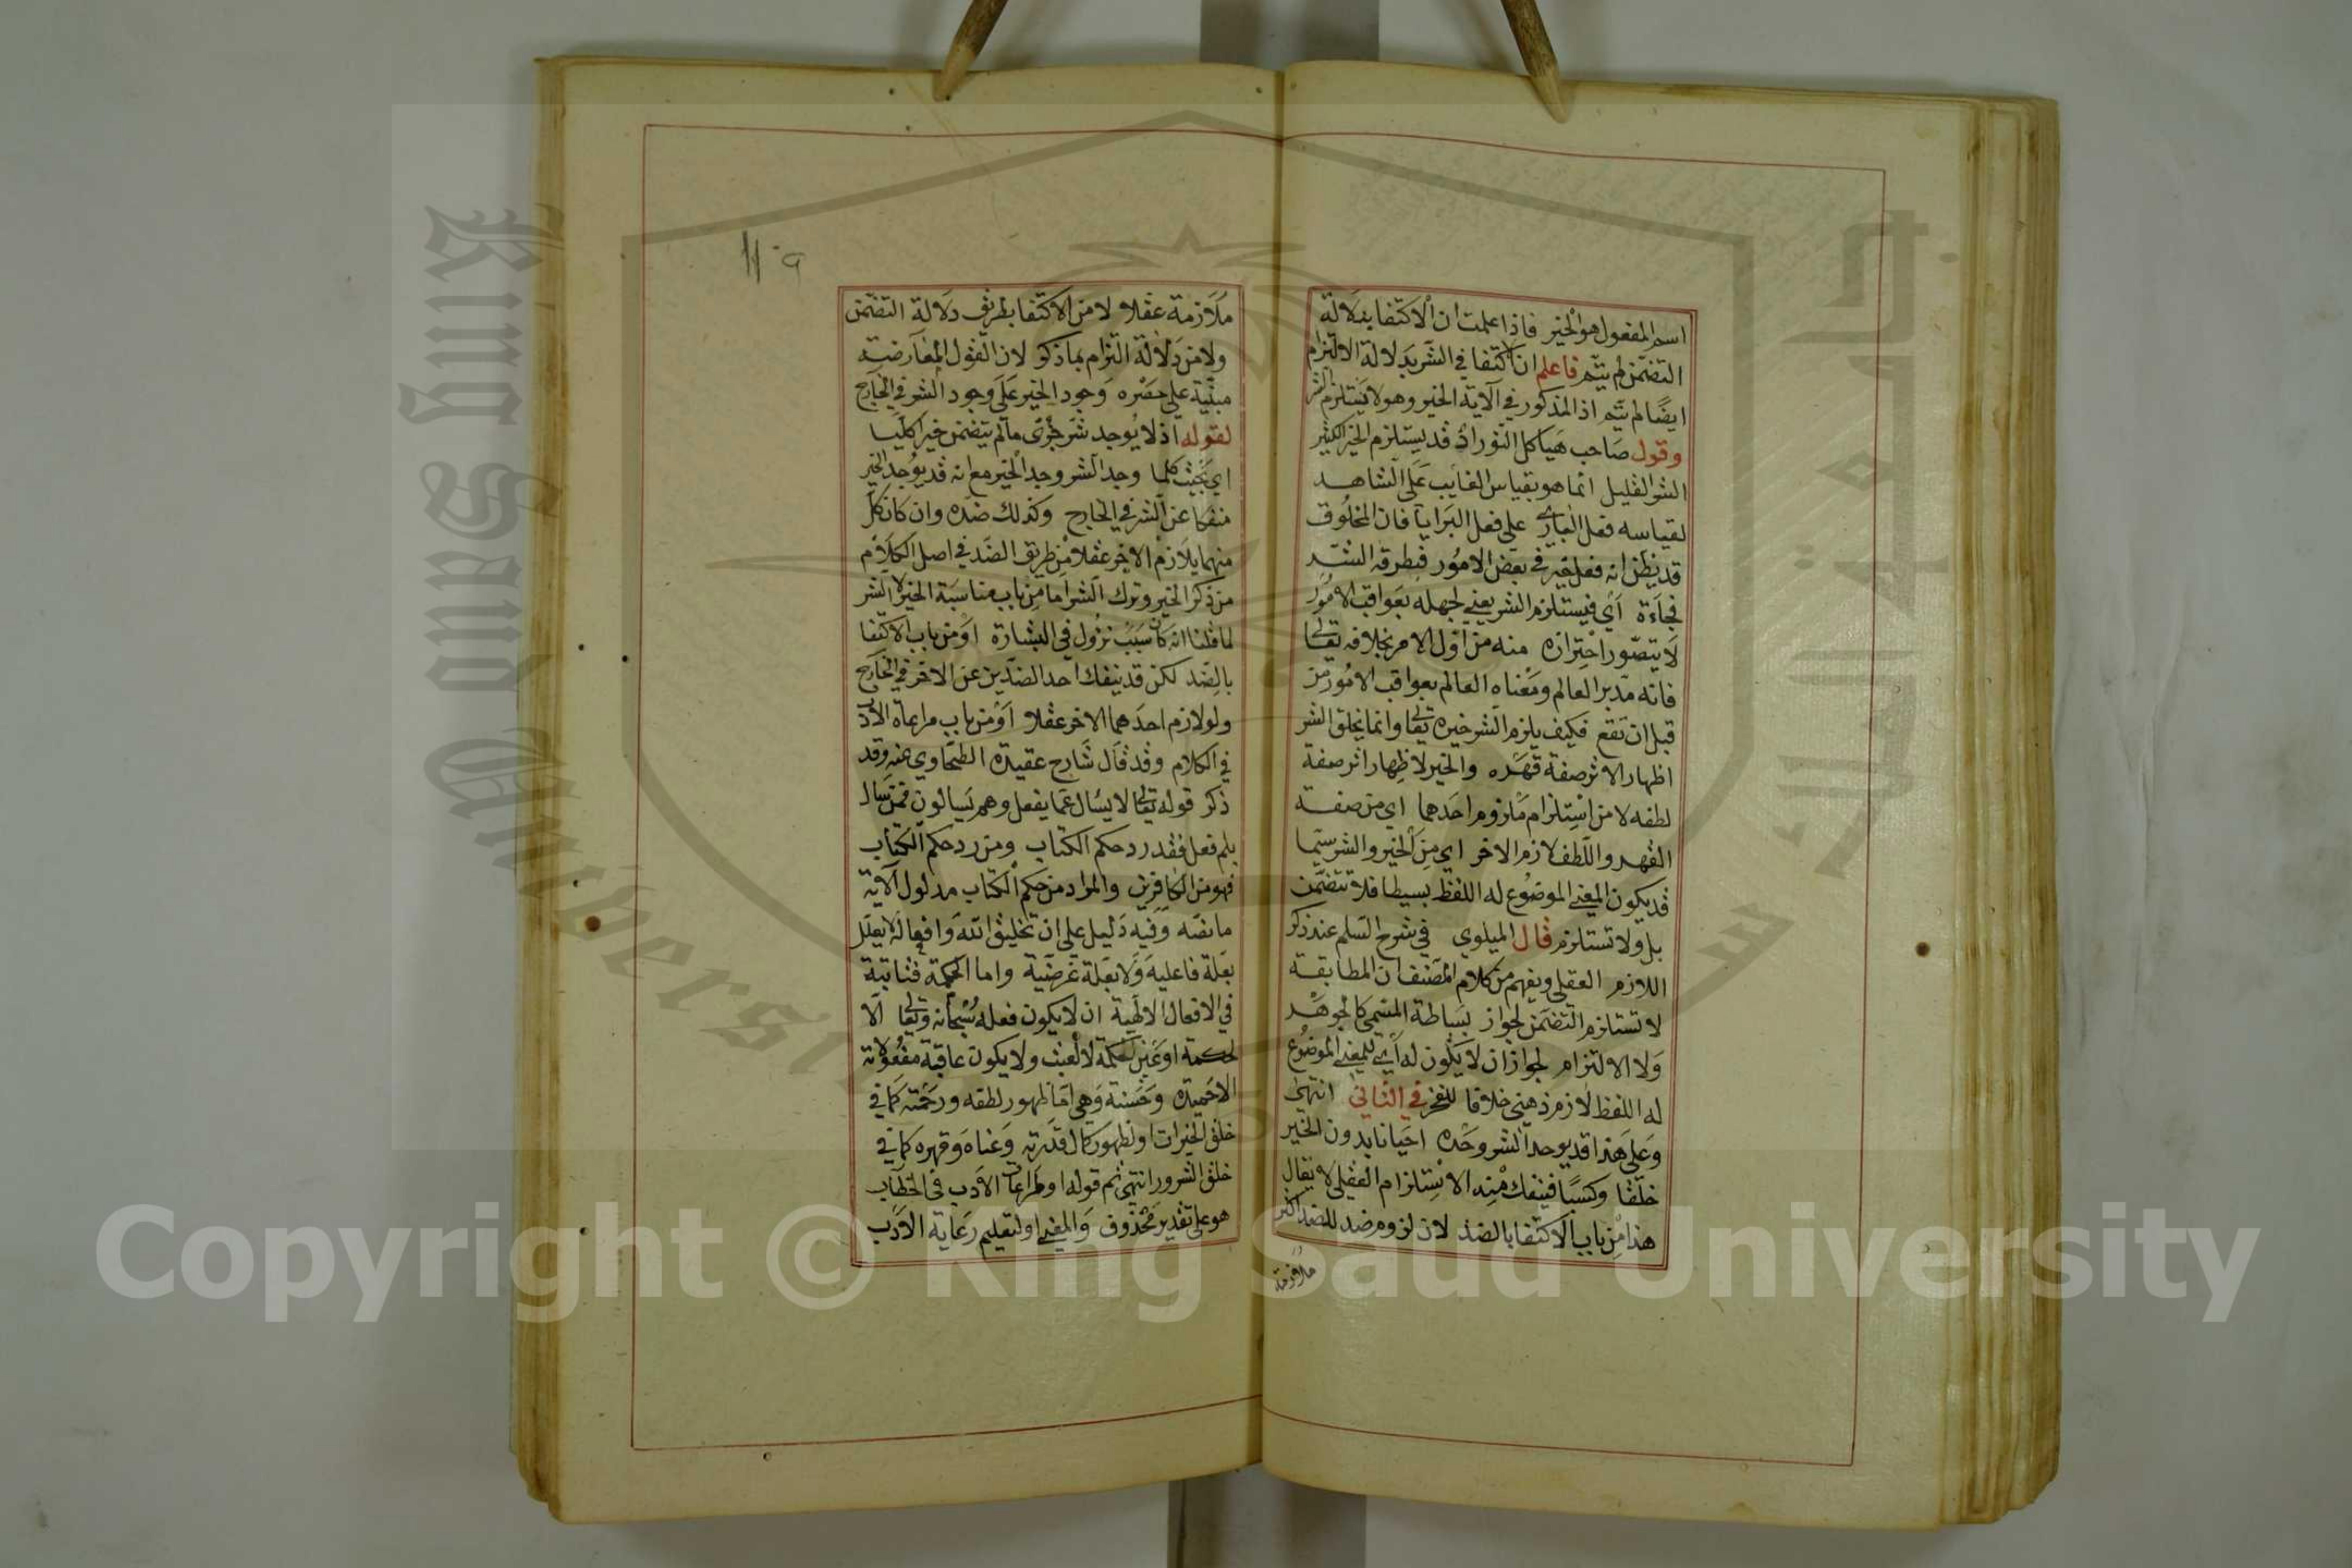 اسم المفعول هو الخير فاذا علمت ان الاكتفا بدلالة
التضمن لم يتم فاعلم ان اكتفا في الشر بدلالة الالتزام
ايضا لم يتم اذ المذكور في الآية الخير وهو لا يستلزم الشر
وقول صاحب هياكل النور اذ قد يستلزم الخير الكثير
الشر القليل انما هو بقياس الغايب على الشاهد
لقياسه فعل الباري على فعل البرايا فان المخلوق
قد يظن انه فعل خير في بعض الامور فيطرقه الشر
فجاءة اي فيستلزم الشر يعني لجهله بعواقب الامور
لا يتصور احترازه منه من اول الامر بخلافه تعالى
فانه مدبر العالم ومعناه العالم بعواقب الامور من
قبل ان تقع فكيف يلزم الشر خيره تعالى وانما يخلق الشر
اظهارا لاثر صفة قهره والخير لاظهار اثر صفة
لطفه لا من استلزام ملزوم احدهما اي من صفة
القهر واللطف لازم الاخر اي من الخير والشر سيما
قد يكون المعنى الموضوع له اللفظ بسيطا فلا تتضمن
بل ولا تستلزم قال الميلوي في شرح السلم عند ذكر
اللازم العقلي ويفهم من كلام المصنف ان المطابقة
لا تستلزم التضمن لجواز بساطة المسمى كالجوهر
ولا الالتزام لجواز ان لا يكون له اي للمعنى الموضوع
له اللفظ لازم ذهني خلافا للفخر في الثاني انتهى
وعلى هذا قد يوجد الشر وحده احيانا بدون الخير
خلقا وكسبا فينفك منه الاستلزام العقلي لا يقال
هذا من باب الاكتفا بالضد لان لزوم ضد للضد اكثر
ملازمة
ملازمة عقلا لا من الاكتفا بطريق دلالة التضمن
ولا من دلالة التزام بما ذكر لان القول المعارضية
مبنية على حصره وجود الخير على وجود الشر في الخارج
لقوله اذ لا يوجد شر جزئي ما لم يتضمن خيرا كليا
اي بحيث كلما وجد الشر وجد الخير مع انه قد يوجد الخير
منفكا عن الشر في الخارج وكذلك ضده وان كان كل
منهما يلازم الاخر عقلا من طريق الضد في اصل الكلام
من ذكر الخير وترك الشر اما من باب مناسبة الخير لا الشر
لما قلنا انه كان سبب نزول في البشارة او من باب الاكتفا
بالضد لكن قد ينفك احد الضدين عن الاخر في الخارج
ولو لازم احدهما الاخر عقلا او من باب مراعاة الادب
في الكلام وقد قال شارح عقيدة الطحاوي عنه وقد
ذكر قوله تعالى لا يسال عما يفعل وهم يسالون فمن سال
بلم فعل فقد رد حكم الكتاب ومن رد حكم الكتاب
فهو من الكافرين والمراد من حكم الكتاب مدلول الآية
ما نصه وفيه دليل على ان تخليق الله وافعاله لا يعلل
بعلة فاعلية ولا بعلة غرضية واما الحكمة فثابتة
في الافعال الالهية ان لا يكون فعله سبحانه وتعالى الا
لحكمة او عين الحكمة لا لعبث ولا يكون عاقبة مفعولاته
الا حميدة وحسنة وهي اما ظهور لطفه ورحمته كما في
خلق الخيرات او لظهور كمال قدرته وغناه وقهره كما في
خلق الشرور انتهى ثم قوله او لمراعات الادب في الخطاب
هو على تقدير محذوف والمعنى او لتعليم رعاية الادب
Copyright © King Saud University
King Saud University